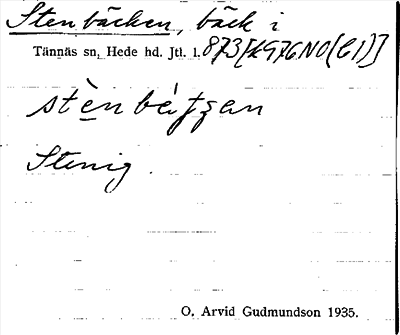 Stenbäcken, bäck i
Tännäs sn, Hede hd. Jtl. l. 873 [ 976 NO (C1)]
Stenig.
O. Arvid Gudmundson 1935.